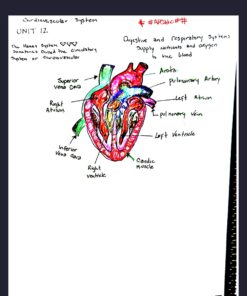 Cardiovascular System
UNIT 12
The Heart System
Sometimes Called the Circulatory
System or Cardiovascular
Digestive and respiratory Systems
Supply nutrients and oxygen
to the blood
Superior
Vena Cava
Aorta
pulmonary Artery
Right
Atrium
Left Atrium
pulmonary Vein
Left Ventricle
Inferior
Vena Cava
Right
Ventricle
Cardiac
Muscle